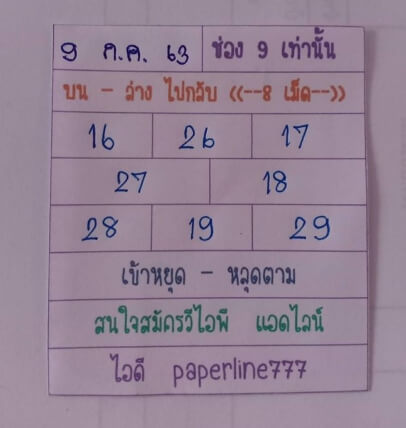 9 ก.ค. 63 ช่อง 9 เท่านั้น
บน - ล่าง ไปกลับ <<--8 เม็ด-->>
16 26 17
27 18
28 19 29
เข้าหยุด - หลุดตาม
สนใจสมัครวีไอพี แอดไลน์
ไอดี paperline777